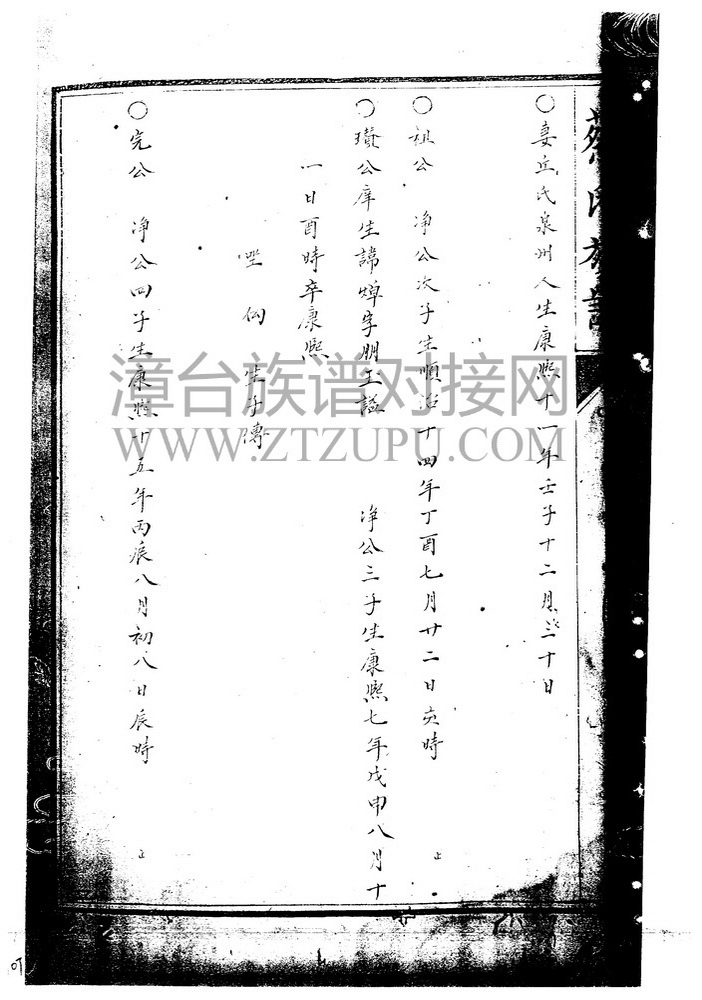 蔡氏族譜
〇妻丘氏泉州人生康熙十一年壬子十二月三十日
〇祖公 净公次子生順治十四年丁酉七月廿二日亥時 止
〇瓚公庠生諱焯字朋玉謚 净公三子生康熙七年戊申八月十
一日酉時卒康熙
坐 向 生子傳
〇完公 净公四子生康熙十五年丙辰八月初八日辰時 止
漳台族谱对接网
WWW.ZTZUPU.COM